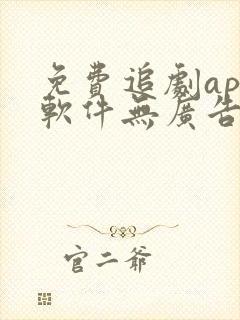 免費追劇ap
軟件無廣告
官二爺